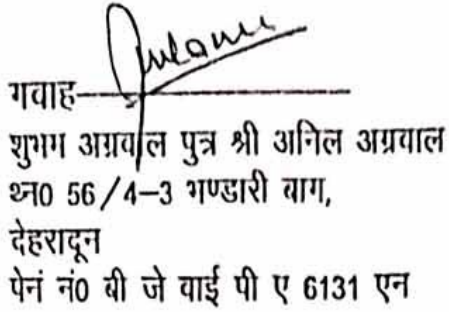 गवाह
शुभग अग्रवाल पुत्र श्री अनिल अग्रवाल
थ्न0 56/4-3 भण्डारी बाग,
देहरादून
पेनं नं0 बी जे वाई पी ए 6131 एन